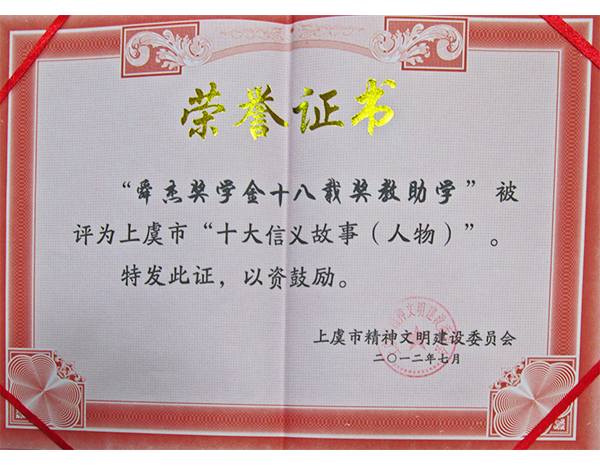 荣誉证书
“舜杰奖学金十八载奖教助学”被
评为上虞市“十大信义故事（人物）”。
特发此证，以资鼓励。
上虞市精神文明建设委员会
二〇一二年七月